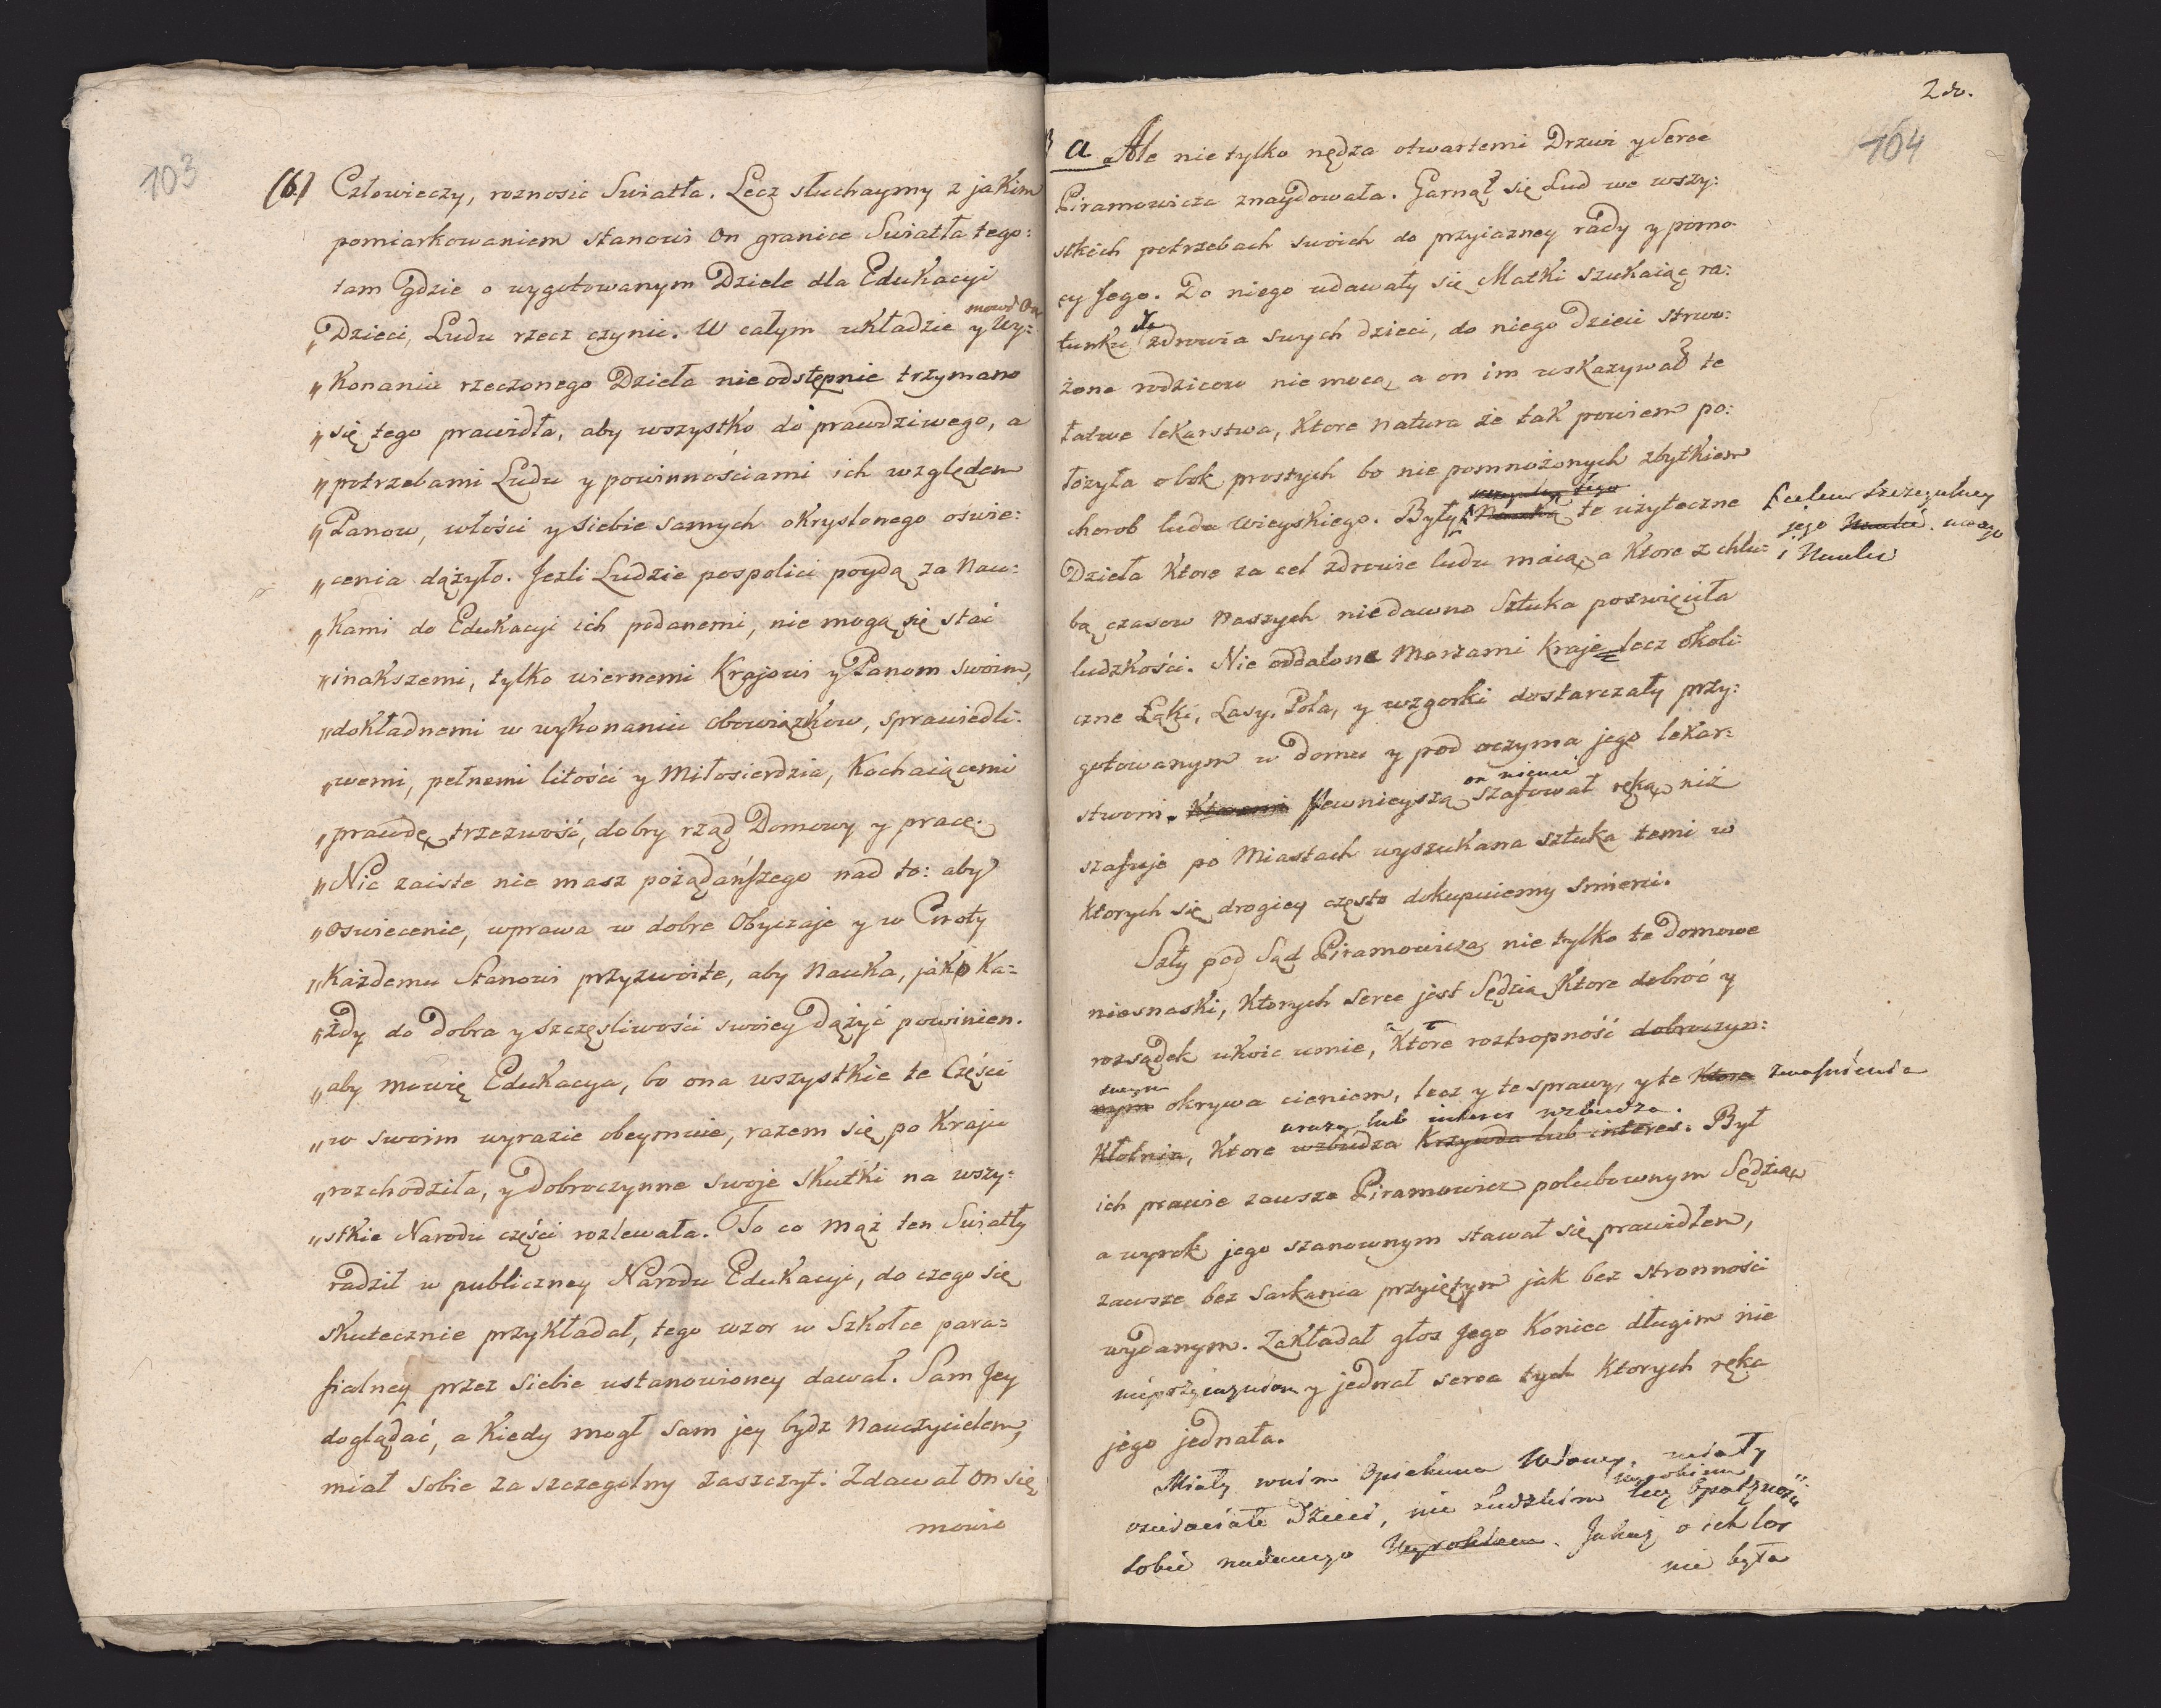 103
(6.) Człowieczy, roznosic Swiatła. Lecz słuchaymy z jakim
pomiarkowaniem stanowi On granice Swiatła tego:
tam gdzie o wygotowanym Dziele dla Edukacyi
mowi On
„Dzieci, Ludu rzecz czyni. W całym układzie y Wy:
„konaniu rzeczonego Dzieła nieodstępnie trzymano
„się tego prawidła, aby wszystko do prawdziwego, a
„potrzebami Ludu y powinnościami ich względem
„Panow, włości y siebie samych okryslonego oswie:
„cenia dążyło. Jezli Ludzie pospolici poydą za Nau:
„kami do Edukacyi ich podanemi, nie mogą się stać
„inakszemi, tylko wiernemi Krajowi y Panom swoim,
„dokładnemi w wykonaniu obowiązkow, sprawiedli:
„wemi, pełnemi litości y Miłosierdzia, Kochaiącemi
„prawdę, trzezwość, dobry rząd Domowy y pracę.
„Nic zaiste nie masz pożądańszego nad to: aby
„oswiecenie, wprawa w dobre Obyczaje y w Cnoty
„Każdemu Stanowi przyzwoite, aby Nauka, jako Ka:
„żdy do dobra y szczęsliwości swoiey dążyć powinien.
„aby mowię Edukacya, bo ona wszystkie te Części
„w swoim wyrazie obeymuie, razem się po Kraju
„rozchodziła, y dobroczynne swoje Skutki na wszy:
„stkie Narodu części rozlewała. To co Mąż ten Swiatły
radził w publiczney Narodu Edukacyi, do czego się
skutecznie przykładał, tego wzor w Szkołce para:
fialney przez siebie ustanowioney dawał. Sam Jey
doglądać, a Kiedy mogł sam jey bydz Nauczycielem,
miał sobie za szczegolny zaszczyt. Zdawał On się
mowic
2do.
104
a Ale nie tylko nędza otwartemi Drzwi y Serce
Piramowicza znaydowała. Garnął się Lud we wszy:
stkich potrzebach swoich do przyiazney rady y pomo
cy Jego. Do niego udawały się Matki szukaiąc ra:
dla
tunku zdrowia swych dzieci, do niego dzieci strwo:
żone rodzicow niemocą, a on im wskazywał te
łatwe lekarstwa, Ktore Natura że tak powiem po:
łożyła obok prostych bo nie pomnożonych zbytkiem
chorob ludu wieyskiego. Były te użyteczne
celem szczegulney
jego uwagi
i Nauki
Dzieła Ktore za cel zdrowie ludu maią, a Ktore z chlu:
bą czasow Naszych niedawno Sztuka poswięciła
ludzkości. Nie oddalone Morzami Kraje lecz okoli
czne Łąki, Lasy, Pola, y wzgorki dostarczały przy:
gotowanym w domu y pod oczyma jego lekar:
on niemi
stwom. Pewnieyszą szafował ręką, niż
szafuje po Miastach wyszukana sztuka temi w
Ktorych się drogiey często dokupuiemy smierci.
Szły pod Sąd Piramowicza, nie tylko te domowe
niesnaski, Ktorych serce jest Sędzia, Ktore dobroć y
rozsądek ukoic umie, a Ktore roztropność dobroczyn:
swym
nym okrywa cieniem, lecz y te sprawy, y te Ktore zwasnienia
uraza lub interes wzbudza.
Kłotnia, Ktore wzbudza Krzywda lub interes. Był
ich prawie zawsze Piramowicz polubownym Sędzią,
a wyrok jego szanownym stawał się prawidłem,
zawsze bez sarkania przyiętym jak bez stronności
wydanym. Zakładał głos Jego Koniec długim nie
nieprzyiazniom y jednał serca tych Ktorych ręka
jego jednała.
Miały w nim Opiekuna Wdowy, miały
wyrokiem
osierociałe Dzieci, nie ludzkim lecz Opatrznosci
sobie nadanego Wyrokiem. Jakaż o ich los
nie była